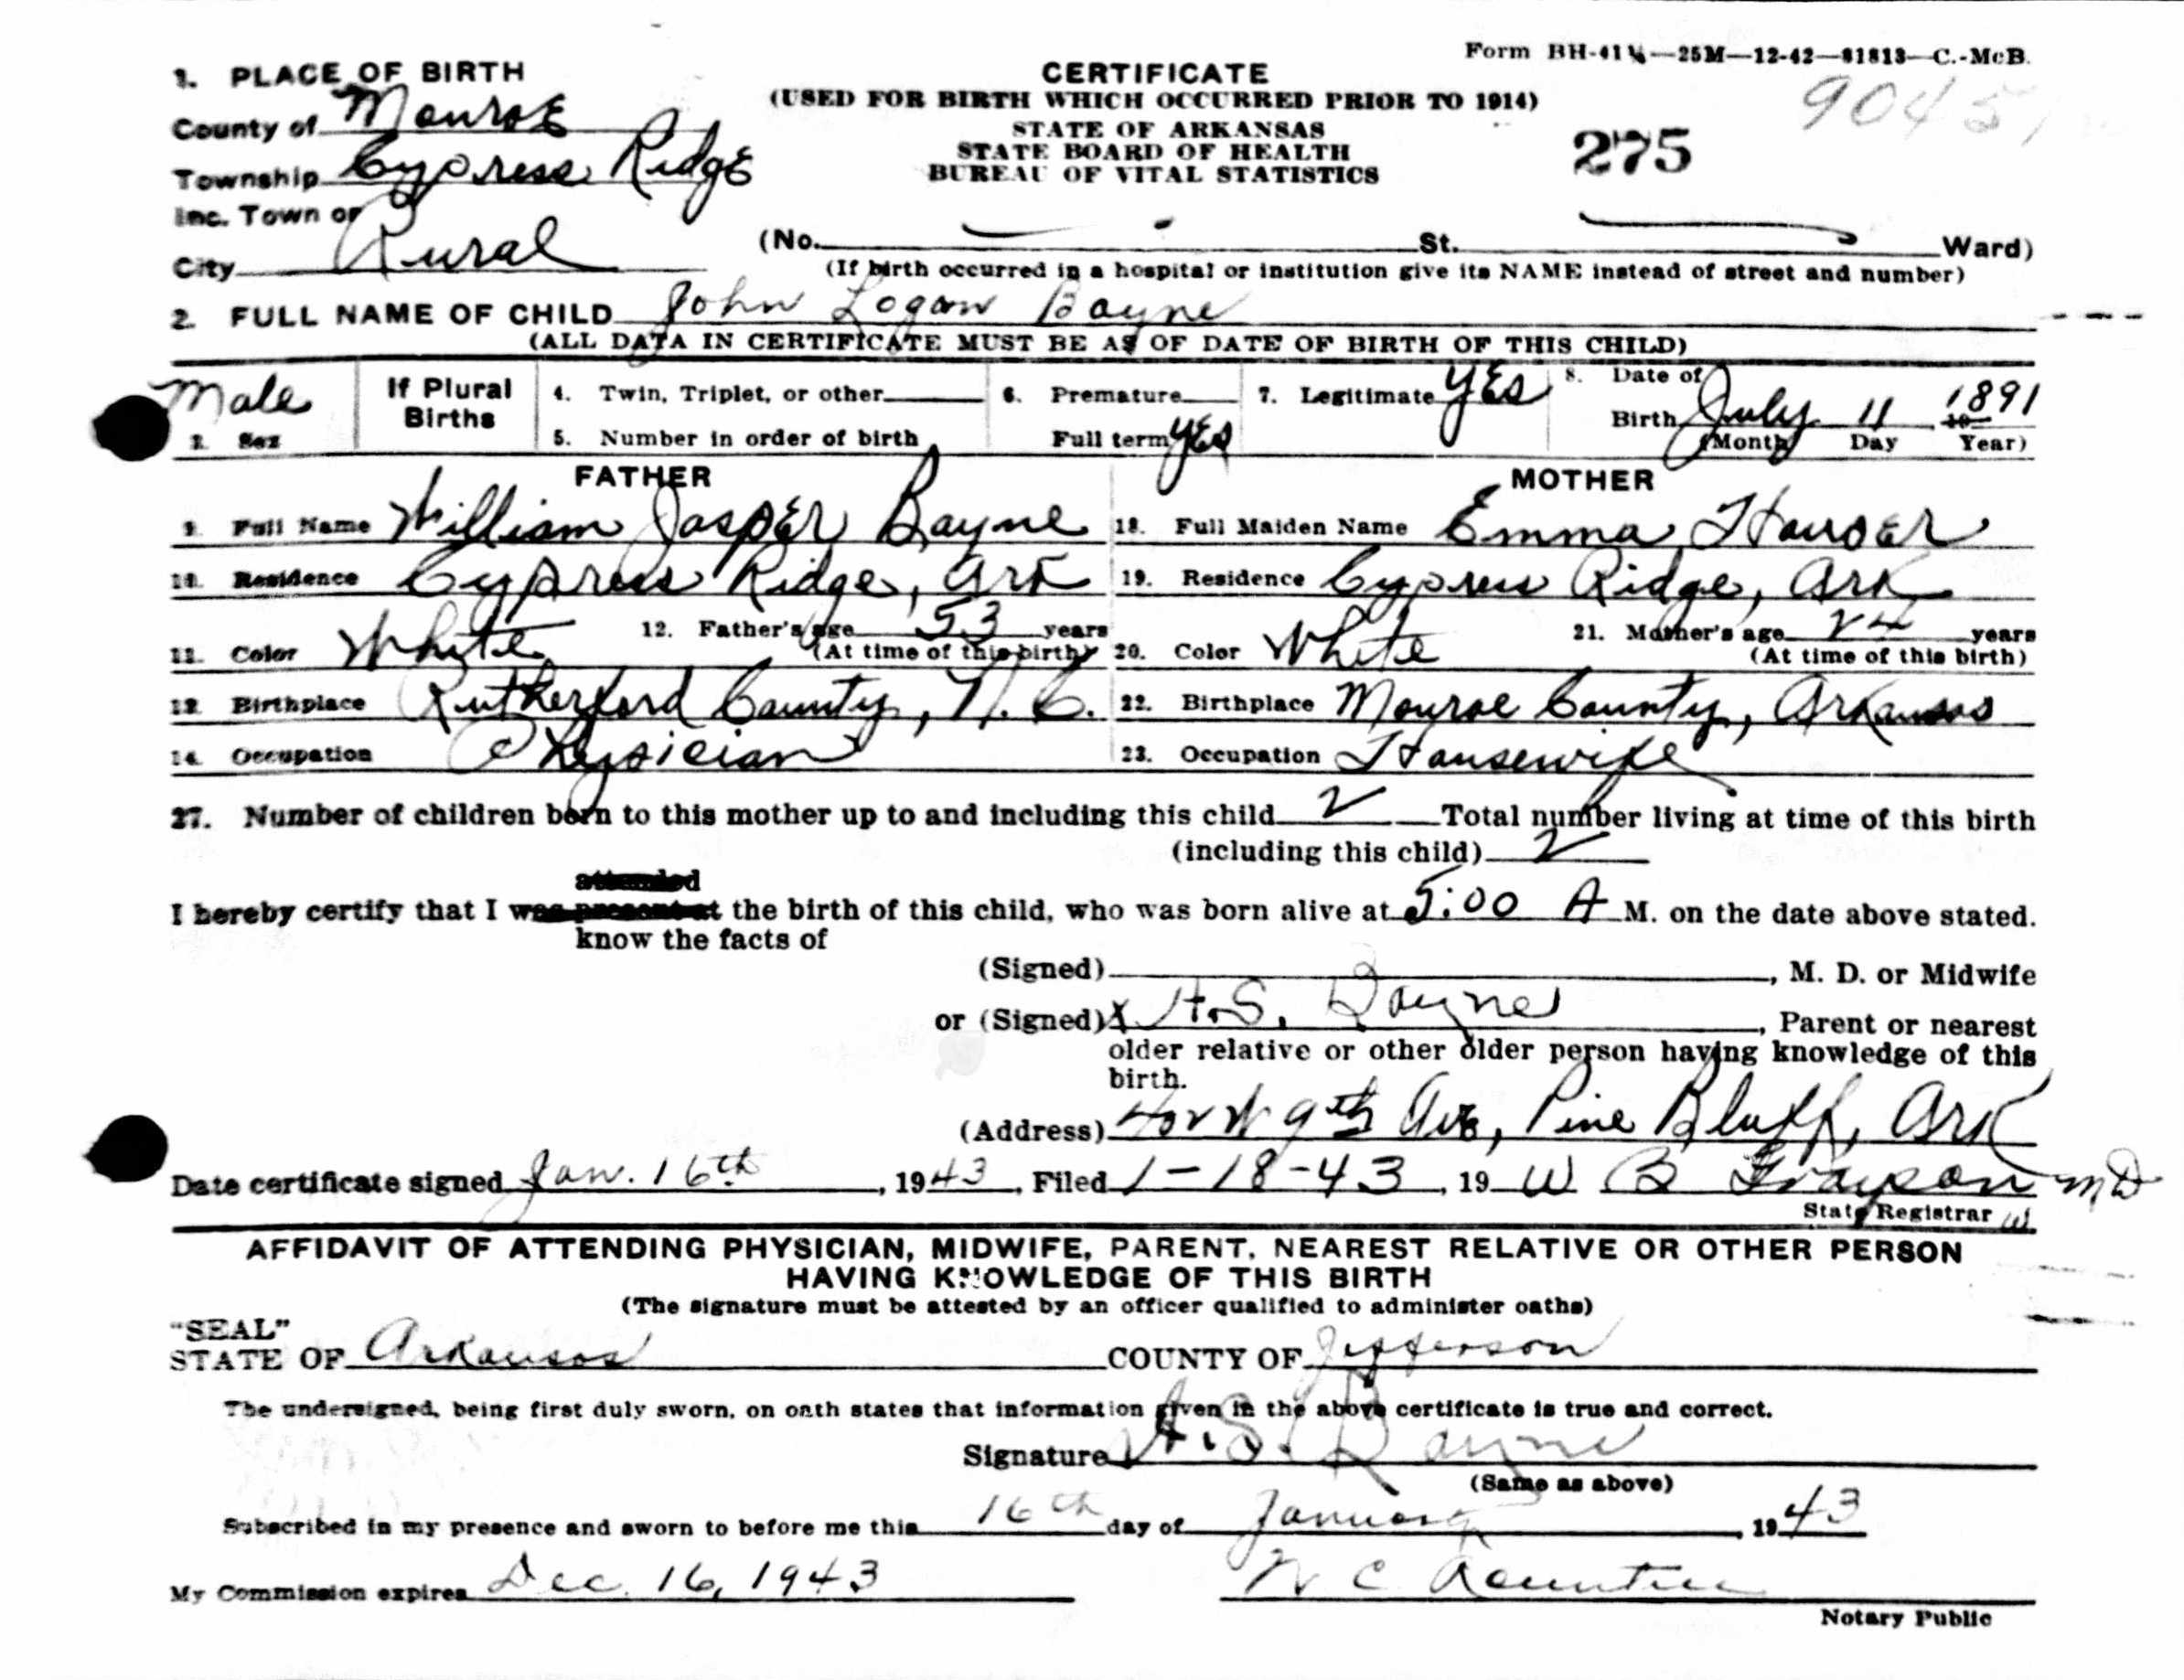 Form BH-41¼—25M—12-42—81813—C.-McB.
90451
1. PLACE OF BIRTH
CERTIFICATE
(USED FOR BIRTH WHICH OCCURRED PRIOR TO 1914)
County of Monroe
STATE OF ARKANSAS
275
STATE BOARD OF HEALTH
Township Cypress Ridge
BUREAU OF VITAL STATISTICS
Inc. Town or
City Rural (No. St. Ward)
(If birth occurred in a hospital or institution give its NAME instead of street and number)
2. FULL NAME OF CHILD John Logan Bayne
(ALL DATA IN CERTIFICATE MUST BE AS OF DATE OF BIRTH OF THIS CHILD)
Male
3. Sex
If Plural
Births
4. Twin, Triplet, or other
5. Number in order of birth
6. Premature
Full term yes
7. Legitimate yes
8. Date of
Birth July 11 1891
(Month Day Year)
FATHER
9. Full Name William Jasper Bayne
10. Residence Cypress Ridge, Ark
11. Color White 12. Father's age 53 years
(At time of this birth)
13. Birthplace Rutherford County, N. C.
14. Occupation Physician
MOTHER
18. Full Maiden Name Emma Houser
19. Residence Cypress Ridge, Ark
20. Color White 21. Mother's age 24 years
(At time of this birth)
22. Birthplace Monroe County, Arkansas
23. Occupation Housewife
27. Number of children born to this mother up to and including this child 2 Total number living at time of this birth
(including this child) 2
attended
I hereby certify that I was present at the birth of this child, who was born alive at 5:00 A M. on the date above stated.
know the facts of
(Signed) , M. D. or Midwife
or (Signed) x H. S. Bayne , Parent or nearest
older relative or other older person having knowledge of this
birth.
(Address) 402 W 9th Ave, Pine Bluff, Ark
Date certificate signed Jan. 16th , 1943 , Filed 1-18-43 , 19 W B Grayson MD
State Registrar
AFFIDAVIT OF ATTENDING PHYSICIAN, MIDWIFE, PARENT, NEAREST RELATIVE OR OTHER PERSON
HAVING KNOWLEDGE OF THIS BIRTH
(The signature must be attested by an officer qualified to administer oaths)
"SEAL"
STATE OF Arkansas COUNTY OF Jefferson
The undersigned, being first duly sworn, on oath states that information given in the above certificate is true and correct.
Signature H. S. Bayne
(Same as above)
Subscribed in my presence and sworn to before me this 16th day of January , 1943
My Commission expires Dec. 16, 1943 W C Rountree
Notary Public